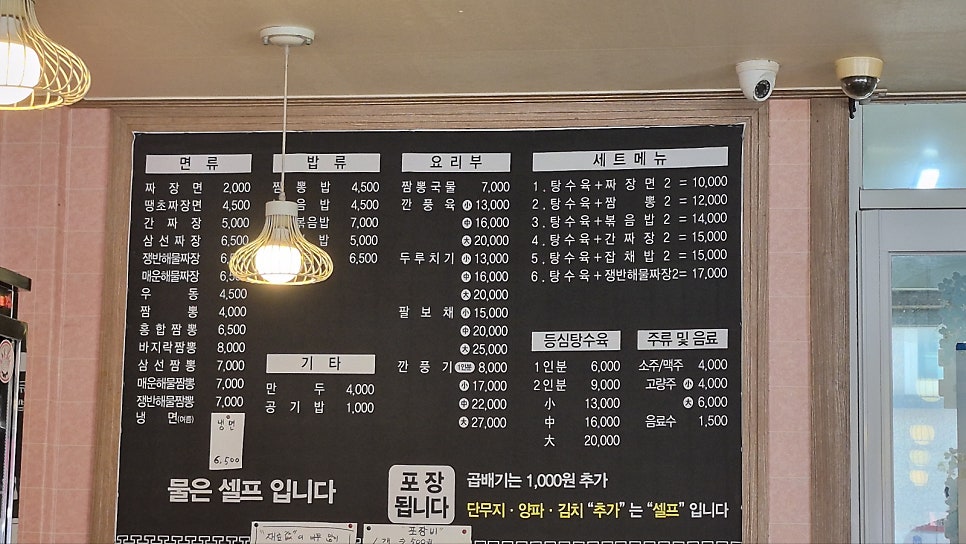 면류
짜장면 2,000
땡초짜장면 4,500
간짜장 5,000
삼선짜장 6,500
쟁반해물짜장
매운해물짜장
우동 4,500
짬뽕 4,000
홍합짬뽕 6,500
바지락짬뽕 8,000
삼선짬뽕 7,000
매운해물짬뽕 7,000
쟁반해물짬뽕 7,000
냉면(여름)
냉면
6,500
밥류
짬뽕밥 4,500
음밥 4,500
볶음밥 7,000
밥 5,000
6,500
기타
만두 4,000
공기밥 1,000
요리부
짬뽕국물 7,000
깐풍육 小 13,000
中 16,000
大 20,000
두루치기 小 13,000
中 16,000
大 20,000
팔보채 小 15,000
中 20,000
大 25,000
깐풍기 1인분 8,000
小 17,000
中 22,000
大 27,000
세트메뉴
1. 탕수육+짜장면 2 = 10,000
2. 탕수육+짬뽕 2 = 12,000
3. 탕수육+볶음밥 2 = 14,000
4. 탕수육+간짜장 2 = 15,000
5. 탕수육+잡채밥 2 = 15,000
6. 탕수육+쟁반해물짜장2= 17,000
등심탕수육
1인분 6,000
2인분 9,000
小 13,000
中 16,000
大 20,000
주류 및 음료
소주/맥주 4,000
고량주 小 4,000
大 6,000
음료수 1,500
물은 셀프 입니다
포장
됩니다
곱배기는 1,000원 추가
단무지·양파·김치 "추가" 는 "셀프" 입니다
포장비